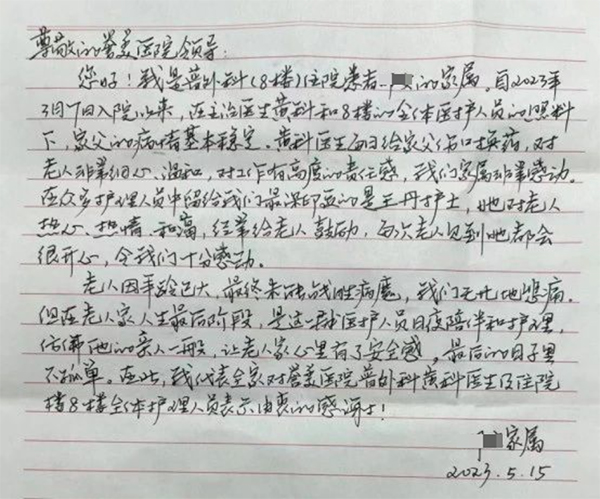 尊敬的誉美医院领导:
您好!我是普外科(8楼)住院患者 的家属。自2023年
3月7日入院以来,在主治医生黄科和8楼的全体医护人员的照料
下,家父的病情基本稳定。黄科医生每日给家父伤口换药,对
老人非常细心、温和,对工作有高度的责任感,我们家属非常感动。
在众多护理人员中留给我们最深印象的是王丹护士,她对老人
热心、热情、和蔼,经常给老人鼓励,每次老人见到她都会
很开心,令我们十分感动。
老人因年龄已大,最终未能战胜病魔,我们无比地悲痛。
但在老人家人生最后阶段,是这一群医护人员日夜陪伴和护理,
仿佛他的亲人一般,让老人家心里有了安全感。最后的日子里
不孤单。在此,我代表全家对誉美医院普外科黄科医生及住院
楼8楼全体护理人员表示由衷的感谢!
家属
2023.5.15